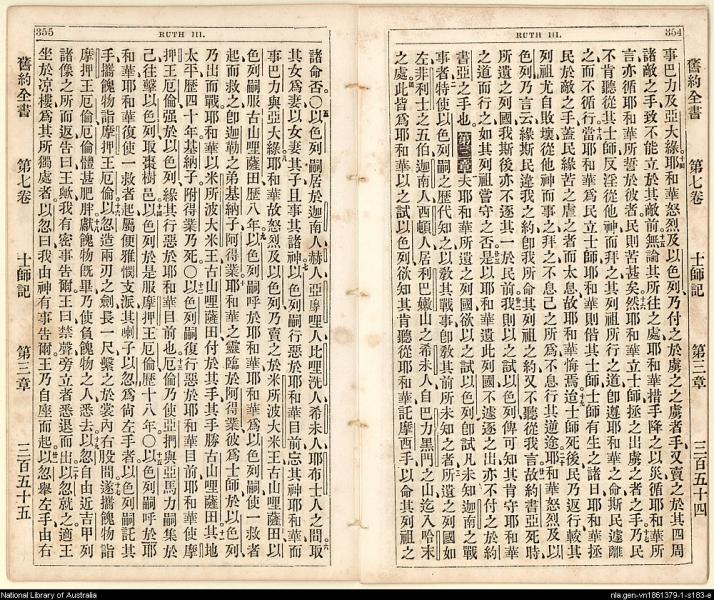 354
RUTH III.
舊約全書 第七卷 士師記 第三章 三百五十四
事巴力及亞大緣耶和華怒烈及以色列乃付之於虜之之虜者手又賣之於其四周
諸敵之手致不能立於其敵前無論其所往之處耶和華措手降之以災循耶和華所
言亦循耶和華所誓於彼者民則苦甚矣然耶和華立士師拯之出虜之者之手乃民
不肯聽從其士師反淫從他神而拜之其列祖所行之道卽遵耶和華之命斯民遽離
之而不循行當耶和華爲民立士師耶和華則偕其士師士師有生之諸日耶和華拯
民於敵之手蓋民緣苦之虐之者而太息故耶和華悔焉迨士師死後民乃返行較其
列祖尤自敗壞從他神而事之拜之不息己之所爲不息行其逆途耶和華怒烈及以
色列乃言云緣斯民違我之約卽我所命其列祖之約又不聽從我言故約書亞死時
所遺之列國我斯後亦不逐其一於民前我則以之試以色列俾可知其肯守耶和華
之道而行之如其列祖嘗守之否是以耶和華遺此列國不遽逐之出亦不付之於約
書亞之手也 第三章 夫耶和華所遺之列國欲以之試以色列卽試凡未知迦南之戰
事者特使以色列嗣之歷代知之以敎其戰事卽敎其前所未知之者所遺之列國如
左非利士之五伯迦南人西頓人居利巴嫩山之希未人自巴力黑門之山迄入哈末
之處此皆爲耶和華以之試以色列欲知其肯聽從耶和華託摩西手以命其列祖之
355
RUTH III.
諸命否○以色列嗣居於迦南人赫人亞摩哩人比哩洗人希未人耶布士人之間取
其女爲妻以女妻其子且事其諸神以色列嗣行惡於耶和華目前忘其神耶和華而
事巴力與亞大緣耶和華故怒烈及以色列乃賣之於米所波大米王古山哩薩田以
色列嗣服古山哩薩田歷八年以色列嗣呼於耶和華耶和華爲以色列嗣使一救者
起而救之卽迦勒之弟基納子阿得業耶和華之靈臨於阿得業彼爲士師於以色列
乃出而戰耶和華以米所波大米王古山哩薩田付於其手其手勝古山哩薩田其地
太平歷四十年基納子阿得業乃死○以色列嗣復行惡於耶和華目前耶和華使摩
押王厄倫强於以色列緣其行惡於耶和華目前也厄倫乃使亞捫與亞馬力嗣集於
己往擊以色列取棗樹邑以色列於是服摩押王厄倫歷十八年○以色列嗣呼於耶
和華耶和華復使一救者起屬便雅憫支派其喇子以忽爲尙左手者以色列嗣託其
手攜餽物詣摩押王厄倫以忽造兩刃之劍長一尺繫之於裳內右股間遂攜餽物詣
摩押王厄倫厄倫體甚肥胖獻餽物旣畢乃使負餽物之人悉去以忽自由近吉甲列
諸像之所而返告曰王歟我有密事告爾王曰禁聲旁立者悉退而出以忽就之適王
坐於涼樓爲其所獨處者以忽曰我由神有事告爾王乃自座而起以忽舉左手由右
舊約全書 第七卷 士師記 第三章 三百五十五
National Library of Australia
nla.gen-vn1861379-1-s183-e